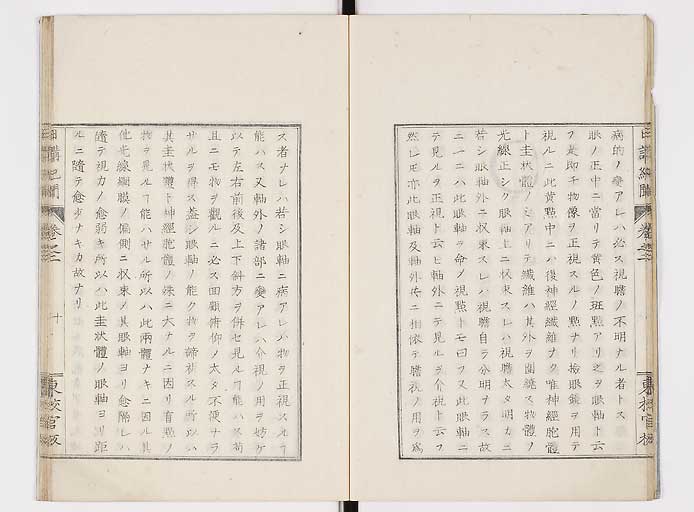 病的ノ變アレハ必ス視瞻ノ不明ナル者トス
眼ノ正中ニ當リテ黄色ノ斑點アリ之ヲ眼軸ト云
フ是即チ物像ヲ正視スルノ點ナリ撿眼鏡ヲ用テ
視ルニ此黄點中ニハ復神經纖維ナク唯神經胞體
ト圭狀體ノミアリテ纖維ハ其外ヲ圍繞ス物體ノ
光線正シク眼軸上ニ収束スレハ視瞻太タ明カニ
若シ眼軸外ニ収束スレハ視瞻自ラ分明ナラス故
ニ一ニハ此眼軸ヲ命メ視點トモ曰フス此眼軸ニ
テ見ルヲ正視ト云ヒ軸外ニテ見ルヲ介視ト云フ
然レ𪜈亦此眼軸及軸外ニ相依テ瞻視ノ用ヲ爲
ス者ナレハ若シ眼軸ニ病アレハ物ヲ正視スルヿ
能ハス又軸外ノ諸部ニ變アレハ介視ノ用ヲ妨ケ
以テ左右前後及上下斜方ヲ併セ見ルヿ能ハス苟
且ニモ物ヲ觀ルニ必ス回顧俯仰ノ太タ不便ナラ
サルヲ得ス蓋シ眼軸ノ能ク物ヲ諦視スル所以ハ
其圭狀體ト神經胞體ノ殊ニ大ナルニ因リ盲點ノ
物ヲ見ルヿ能ハサル所以ハ此兩體ナキニ因ル其
他光線網膜ノ偏側ニ収束メ其眼軸ヨリ愈隔レハ
隨テ視力ノ愈弱キ所以ハ此圭狀體ノ眼軸ヨリ距
ルニ隨テ愈少ナキカ故ナリ
卷之二
十
東校官版